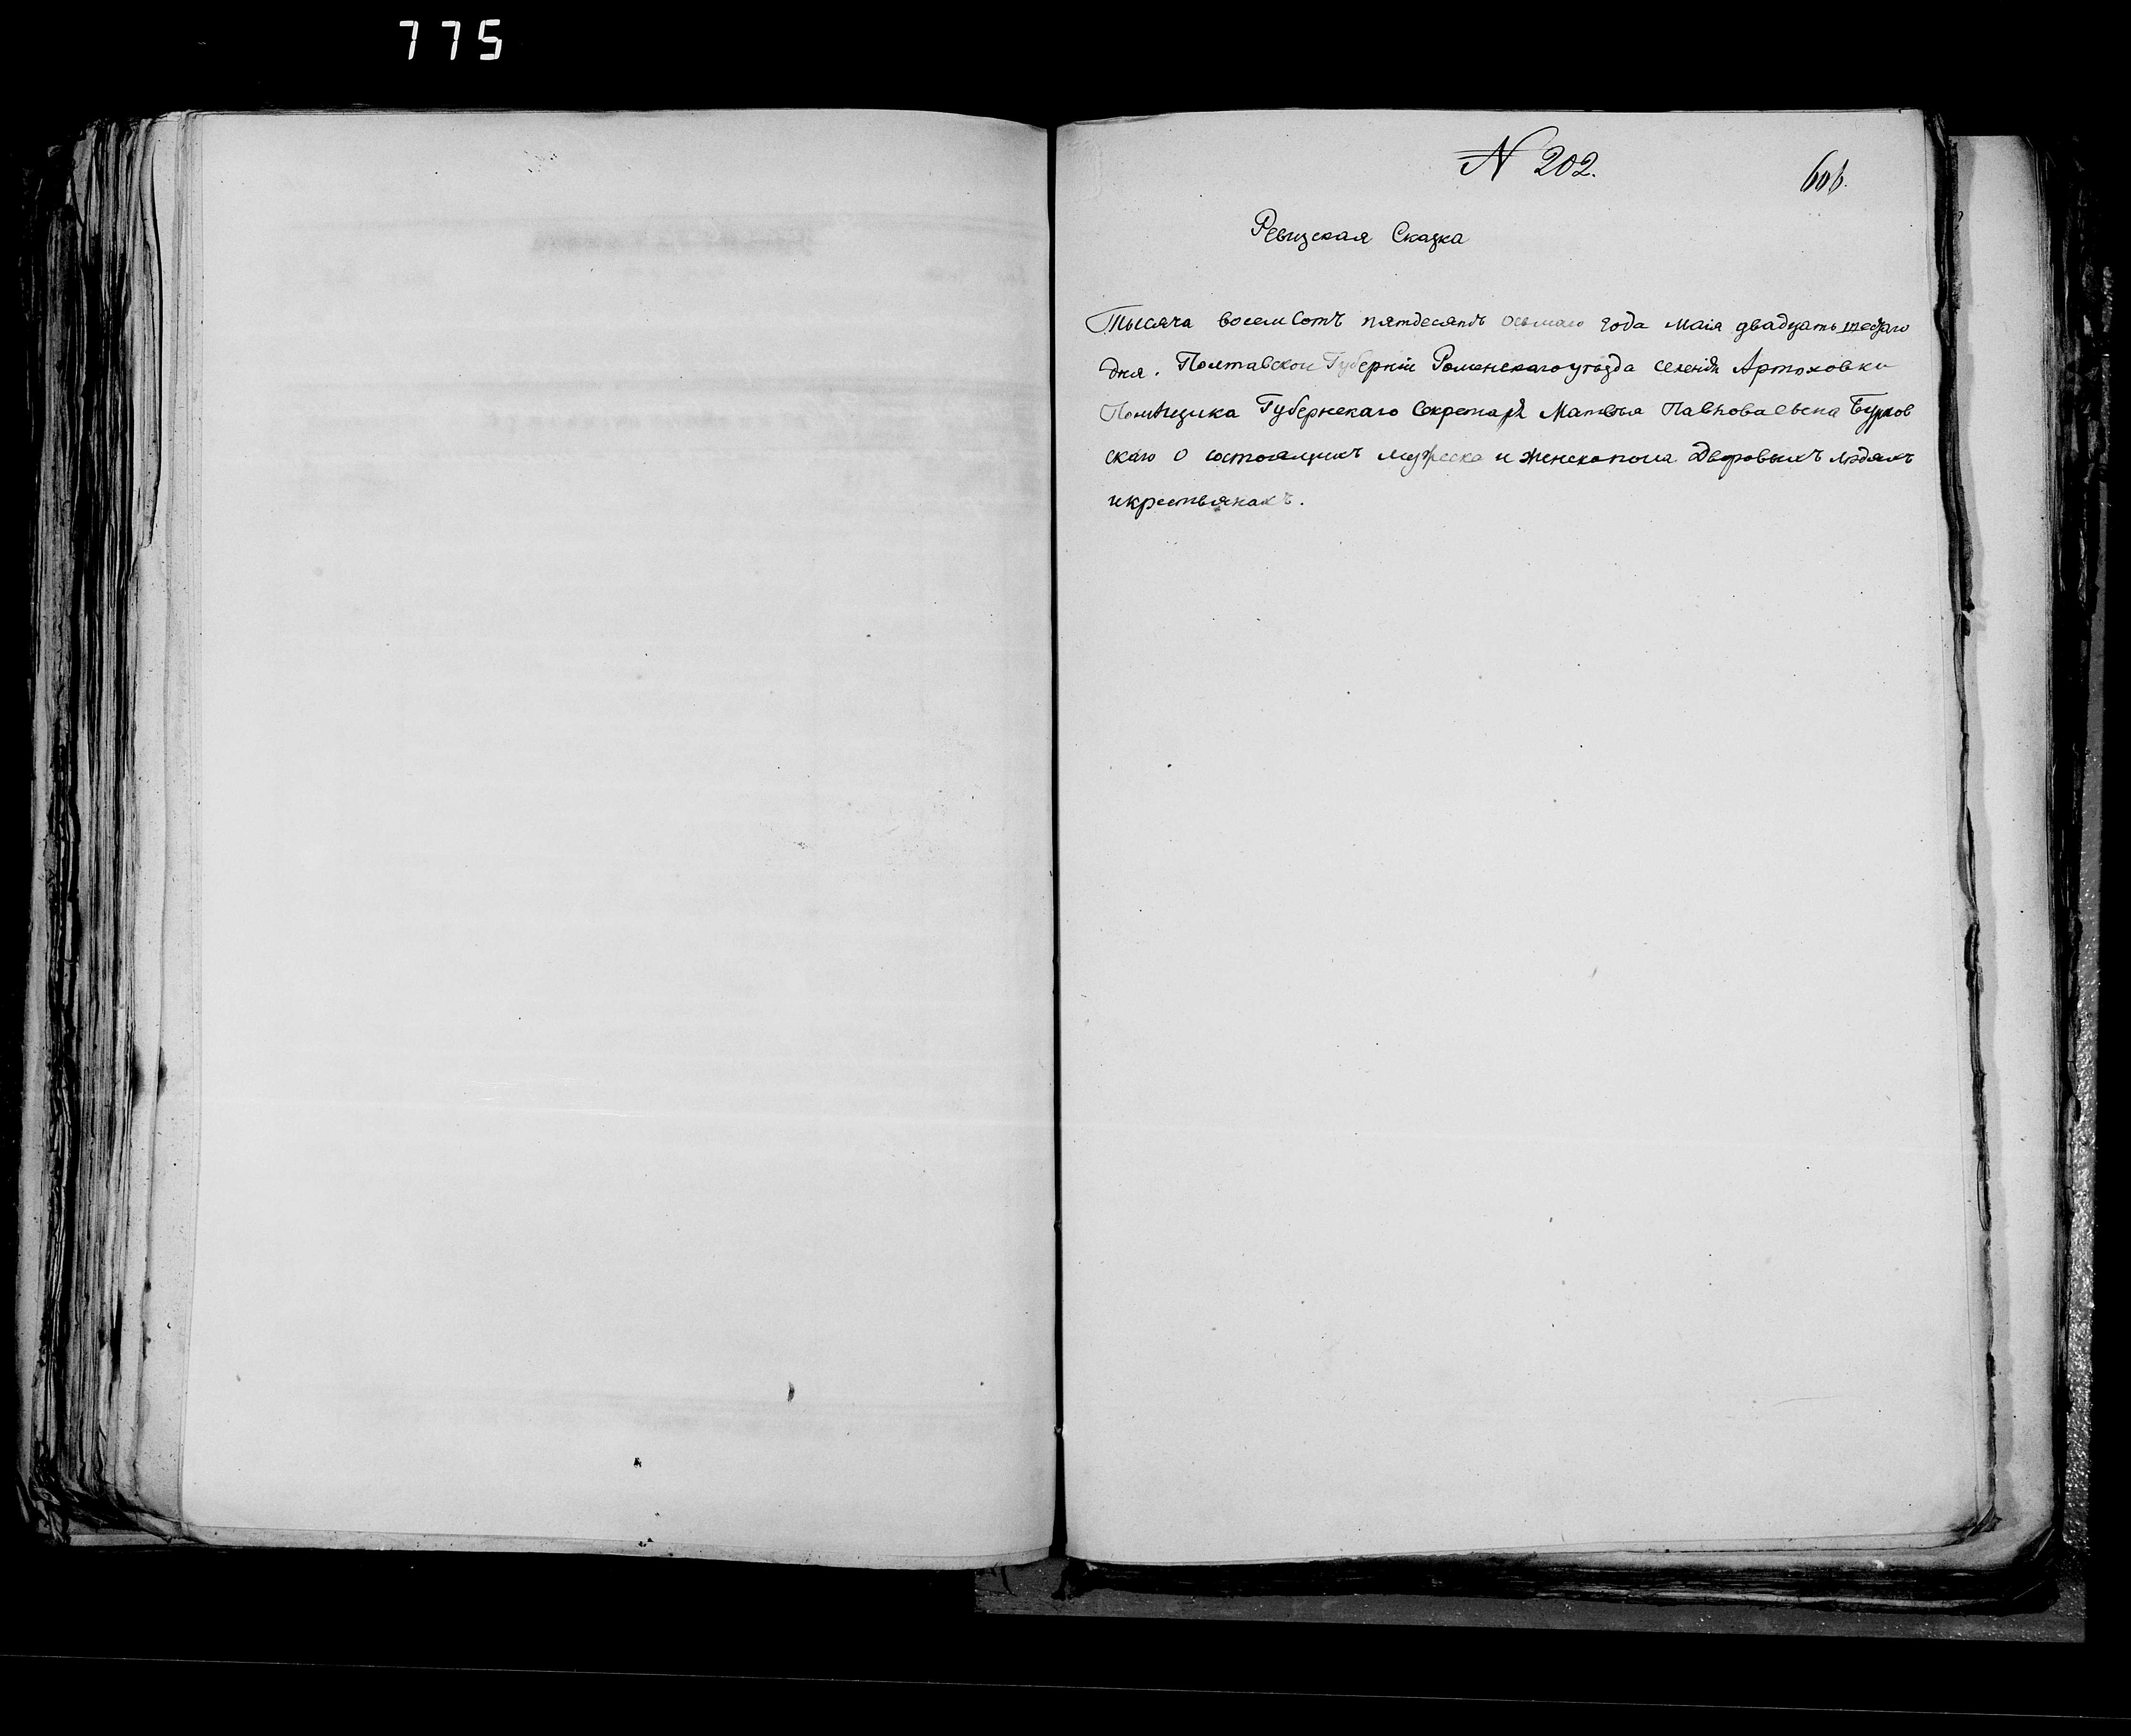 775
N 202.
606.
Ревизская Сказка
Тысяча восемсотъ пятдесятъ осьмаго года маія двадцать шестаго
дня. Полтавской Губерніи Роменскаго уѣзда селенія Артюховки
Помѣщика Губернскаго Секретаря Матвѣя Бурков
скаго о состоящихъ мужеска и женска пола дворовыхъ людяхъ
и крестьянахъ.